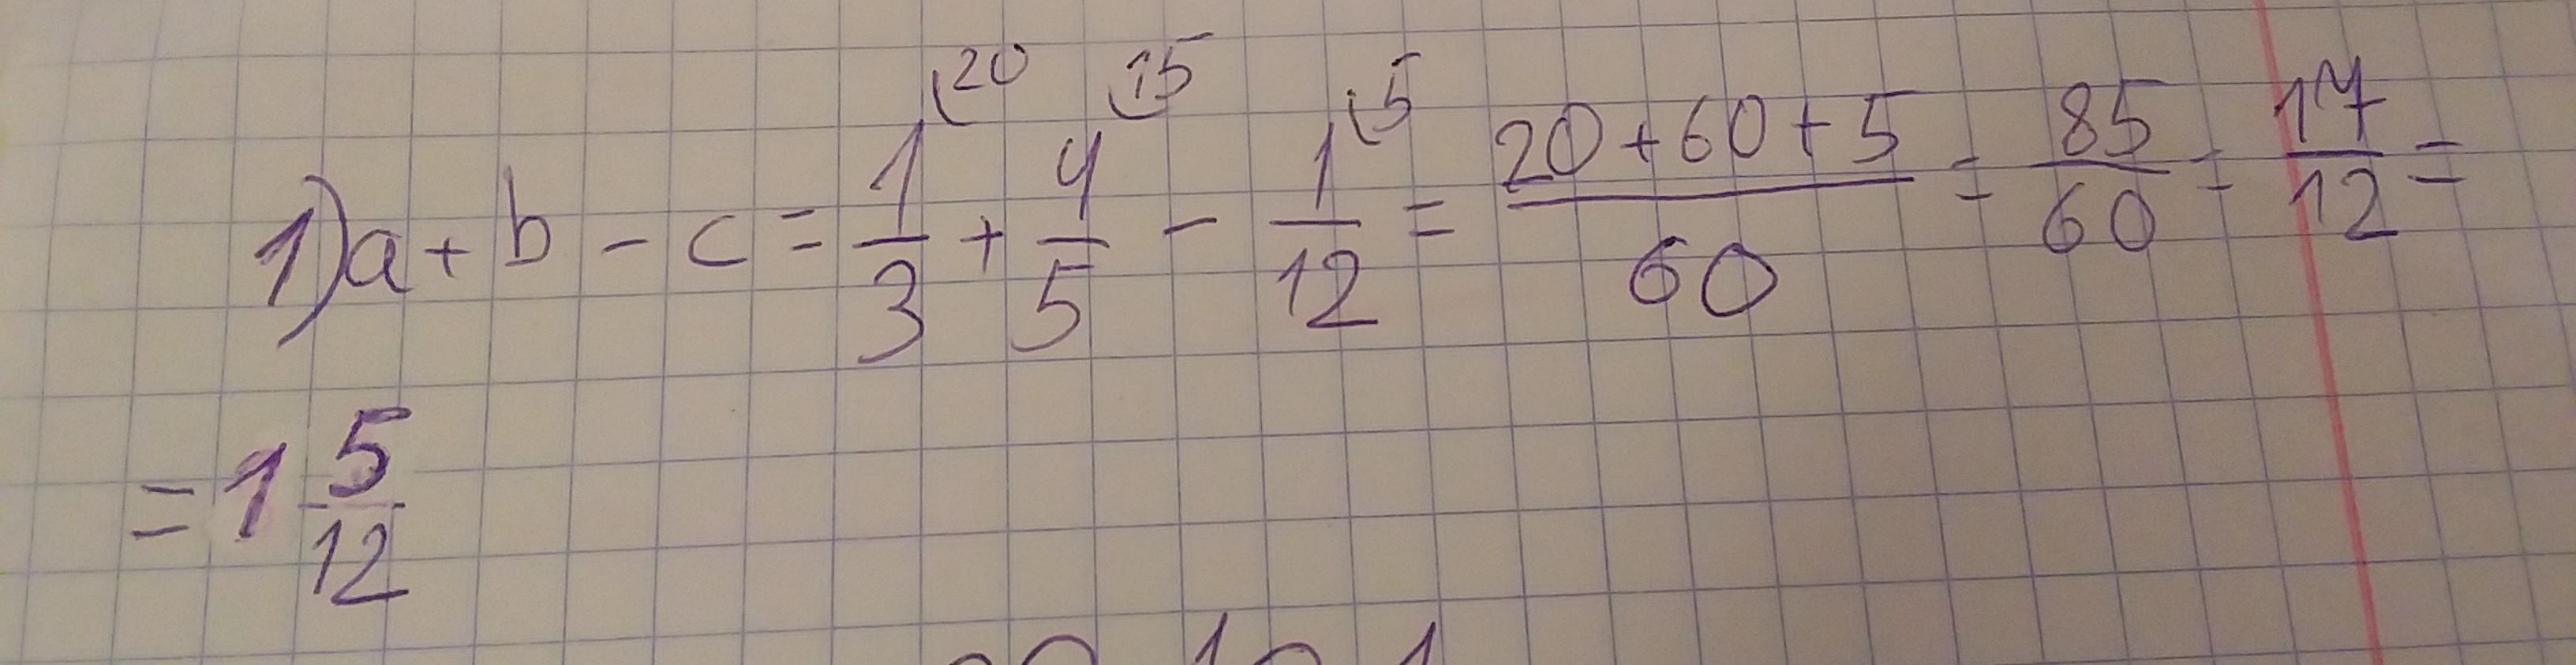 1) a + b - c = 1/3 (20 + 4/5 (15 - 1/12 (5 = 20+60+5/60 = 85/60 = 17/12 =
= 1 5/12